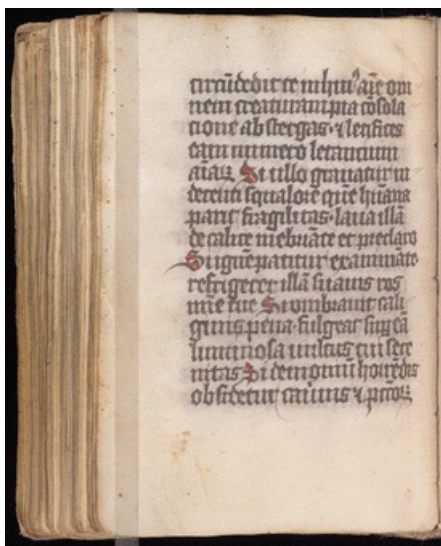 circūdedit te in hui⁹ aīe om
nem creaturam pia cōsola
cione abstergas · & letifices
eam numero letantium
aīaꝝ Si ullo grauatur in
decenti squalore quē hūana
parit fragilitas · laua illā
de calice inebriāte et preclaro
Si igne patitur examināte ·
refrigeret illā suauis ros
mīe tue Si umbrauit cali
ginis pena · fulgeat sup eā
luminosa uultus tui sere
nitas Si demoniū horrēdis
obsidetur